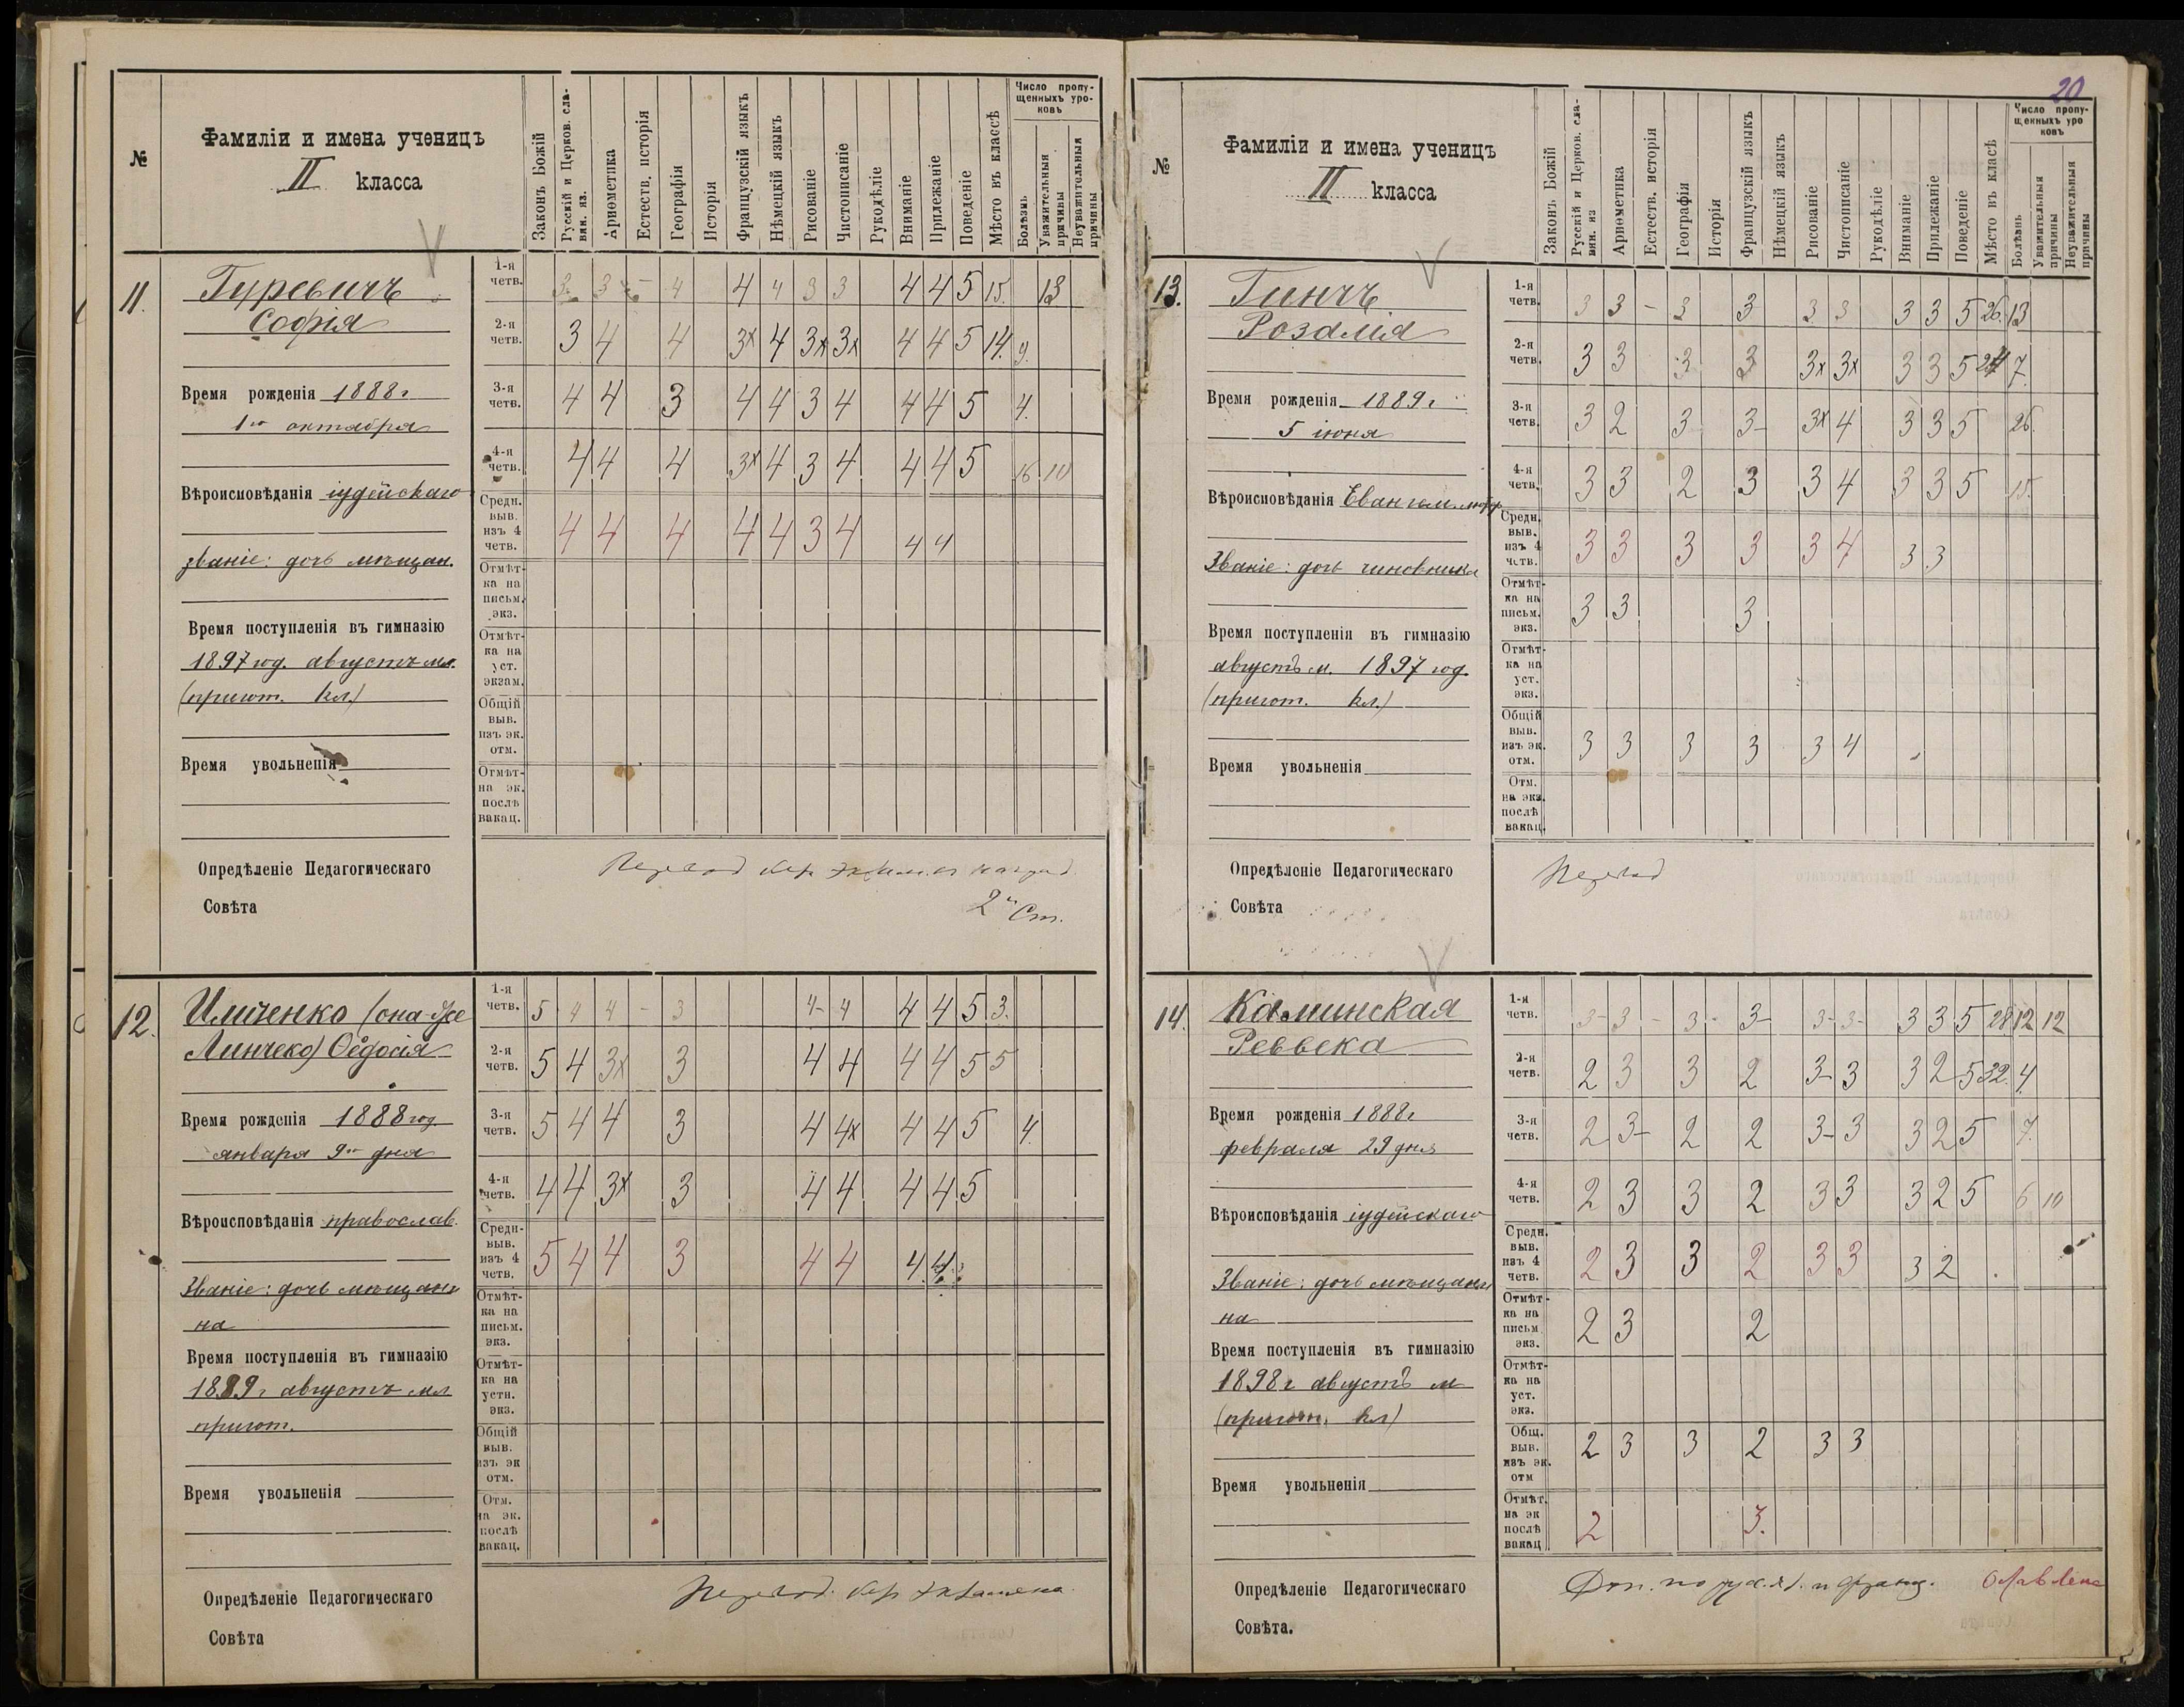 №
Фамиліи и имена ученицъ
II класса
Законъ Божій
Русскій и Церков. сла-
вян. яз.
Ариѳметика
Естеств. исторія
Географія
Исторія
Французскій языкъ
Нѣмецкій языкъ
Рисованіе
Чистописаніе
Рукодѣліе
Вниманіе
Прилежаніе
Поведеніе
Мѣсто въ классѣ
Число пропу-
щенныхъ уро-
ковъ
Болѣзнь
Уважительныя
причины
Неуважительныя
причины
11.
Гуревичъ
Софія
Время рожденія 1888 г
1го октября
Вѣроисповѣданія іудейскаго
званіе: дочь мѣщан.
Время поступленія въ гимназію
1897 год. августъ м.
(пригот. кл.)
Время увольненія
1-я четв. 3 3 - 4 4 4 3 3 4 4 5 15. 13
2-я четв. 3 4 4 3х 4 3х 3х 4 4 5 14. 9.
3-я четв. 4 4 3 4 4 3 4 4 4 5 4.
4-я четв. 4 4 4 3х 4 3 4 4 4 5 16 10
Средн. выв. изъ 4 четв. 4 4 4 4 4 3 4 4 4
Отмѣт-
ка на
письм.
экз.
Отмѣт-
ка на
уст.
экзам.
Общій
выв.
изъ эк.
отм.
Отмѣт-
на эк.
послѣ
вакац.
Опредѣленіе Педагогическаго
Совѣта
Перевод без экзам. с наград.
2й Ст.
12.
Ильченко (она-же
Линчеко) Ѳедосія
Время рожденія 1888 год
января 9го дня
Вѣроисповѣданія православ.
Званіе: дочь мѣщани
на
Время поступленія въ гимназію
1889 г августъ м
пригот.
Время увольненія
1-я четв. 5 4 4 - 3 4- 4 4 4 5 3.
2-я четв. 5 4 3х 3 4 4 4 4 5 5
3-я четв. 5 4 4 3 4 4х 4 4 5 4.
4-я четв. 4 4 3х 3 4 4 4 4 5
Средн. выв. изъ 4 четв. 5 4 4 3 4 4 4 4
Отмѣт-
ка на
письм.
экз.
Отмѣт-
ка на
устн.
экз.
Общій
выв.
изъ эк
отм.
Отм.
на эк.
послѣ
вакац.
Опредѣленіе Педагогическаго
Совѣта
Перевод. без экзамена
20
№
Фамиліи и имена ученицъ
II класса
Законъ Божій
Русскій и Церков. сла-
вян. яз
Ариѳметика
Естеств. исторія
Географія
Исторія
Французскій языкъ
Нѣмецкій языкъ
Рисованіе
Чистописаніе
Рукодѣліе
Вниманіе
Прилежаніе
Поведеніе
Мѣсто въ класѣ
Число пропу-
щенныхъ уро
ковъ
Болѣзнь
Уважительныя
причины
Неуважительныя
причины
13.
Гинчъ
Розалія
Время рожденія 1889 г
5 іюня
Вѣроисповѣданія Евангел. лютер
Званіе: дочь чиновника
Время поступленія въ гимназію
августъ м. 1897 год.
(пригот. кл.)
Время увольненія
1-я четв. 3 3 - 3 3 3 3 3 3 5 26. 13
2-я четв. 3 3 3 3 3х 3х 3 3 5 24 7.
3-я четв. 3 2 3 3- 3х 4 3 3 5 26.
4-я четв. 3 3 2 3 3 4 3 3 5 15.
Средн. выв. изъ 4 четв. 3 3 3 3 3 4 3 3
Отмѣт-
ка на
письм.
экз. 3 3 3
Отмѣт-
ка на
уст.
экз.
Общій
выв.
изъ эк.
отм. 3 3 3 3 3 4
Отм.
на экз.
послѣ
вакац.
Опредѣленіе Педагогическаго
Совѣта
Перевод
14.
Каминская
Реввека
Время рожденія 1888 г
февраля 29 дня
Вѣроисповѣданія іудейскаго
Званіе: дочь мѣщани
на
Время поступленія въ гимназію
1898 г августъ м
(пригот. кл)
Время увольненія
1-я четв. 3- 3 - 3- 3- 3- 3- 3 3 5 28 12 12
2-я четв. 2 3 3 2 3- 3 3 2 5 32. 4.
3-я четв. 2 3- 2 2 3- 3 3 2 5 7.
4-я четв. 2 3 3 2 3 3 3 2 5 6 10
Средн. выв. изъ 4 четв. 2 3 3 2 3 3 3 2
Отмѣт-
ка на
письм
экз. 2 3 2
Отмѣт-
ка на
уст.
экз.
Общ.
выв.
изъ эк.
отм 2 3 3 2 3 3
Отмѣт.
на эк
послѣ
вакац 2 3.
Опредѣленіе Педагогическаго
Совѣта.
Доп. по рус. яз. и франц. Оставлена